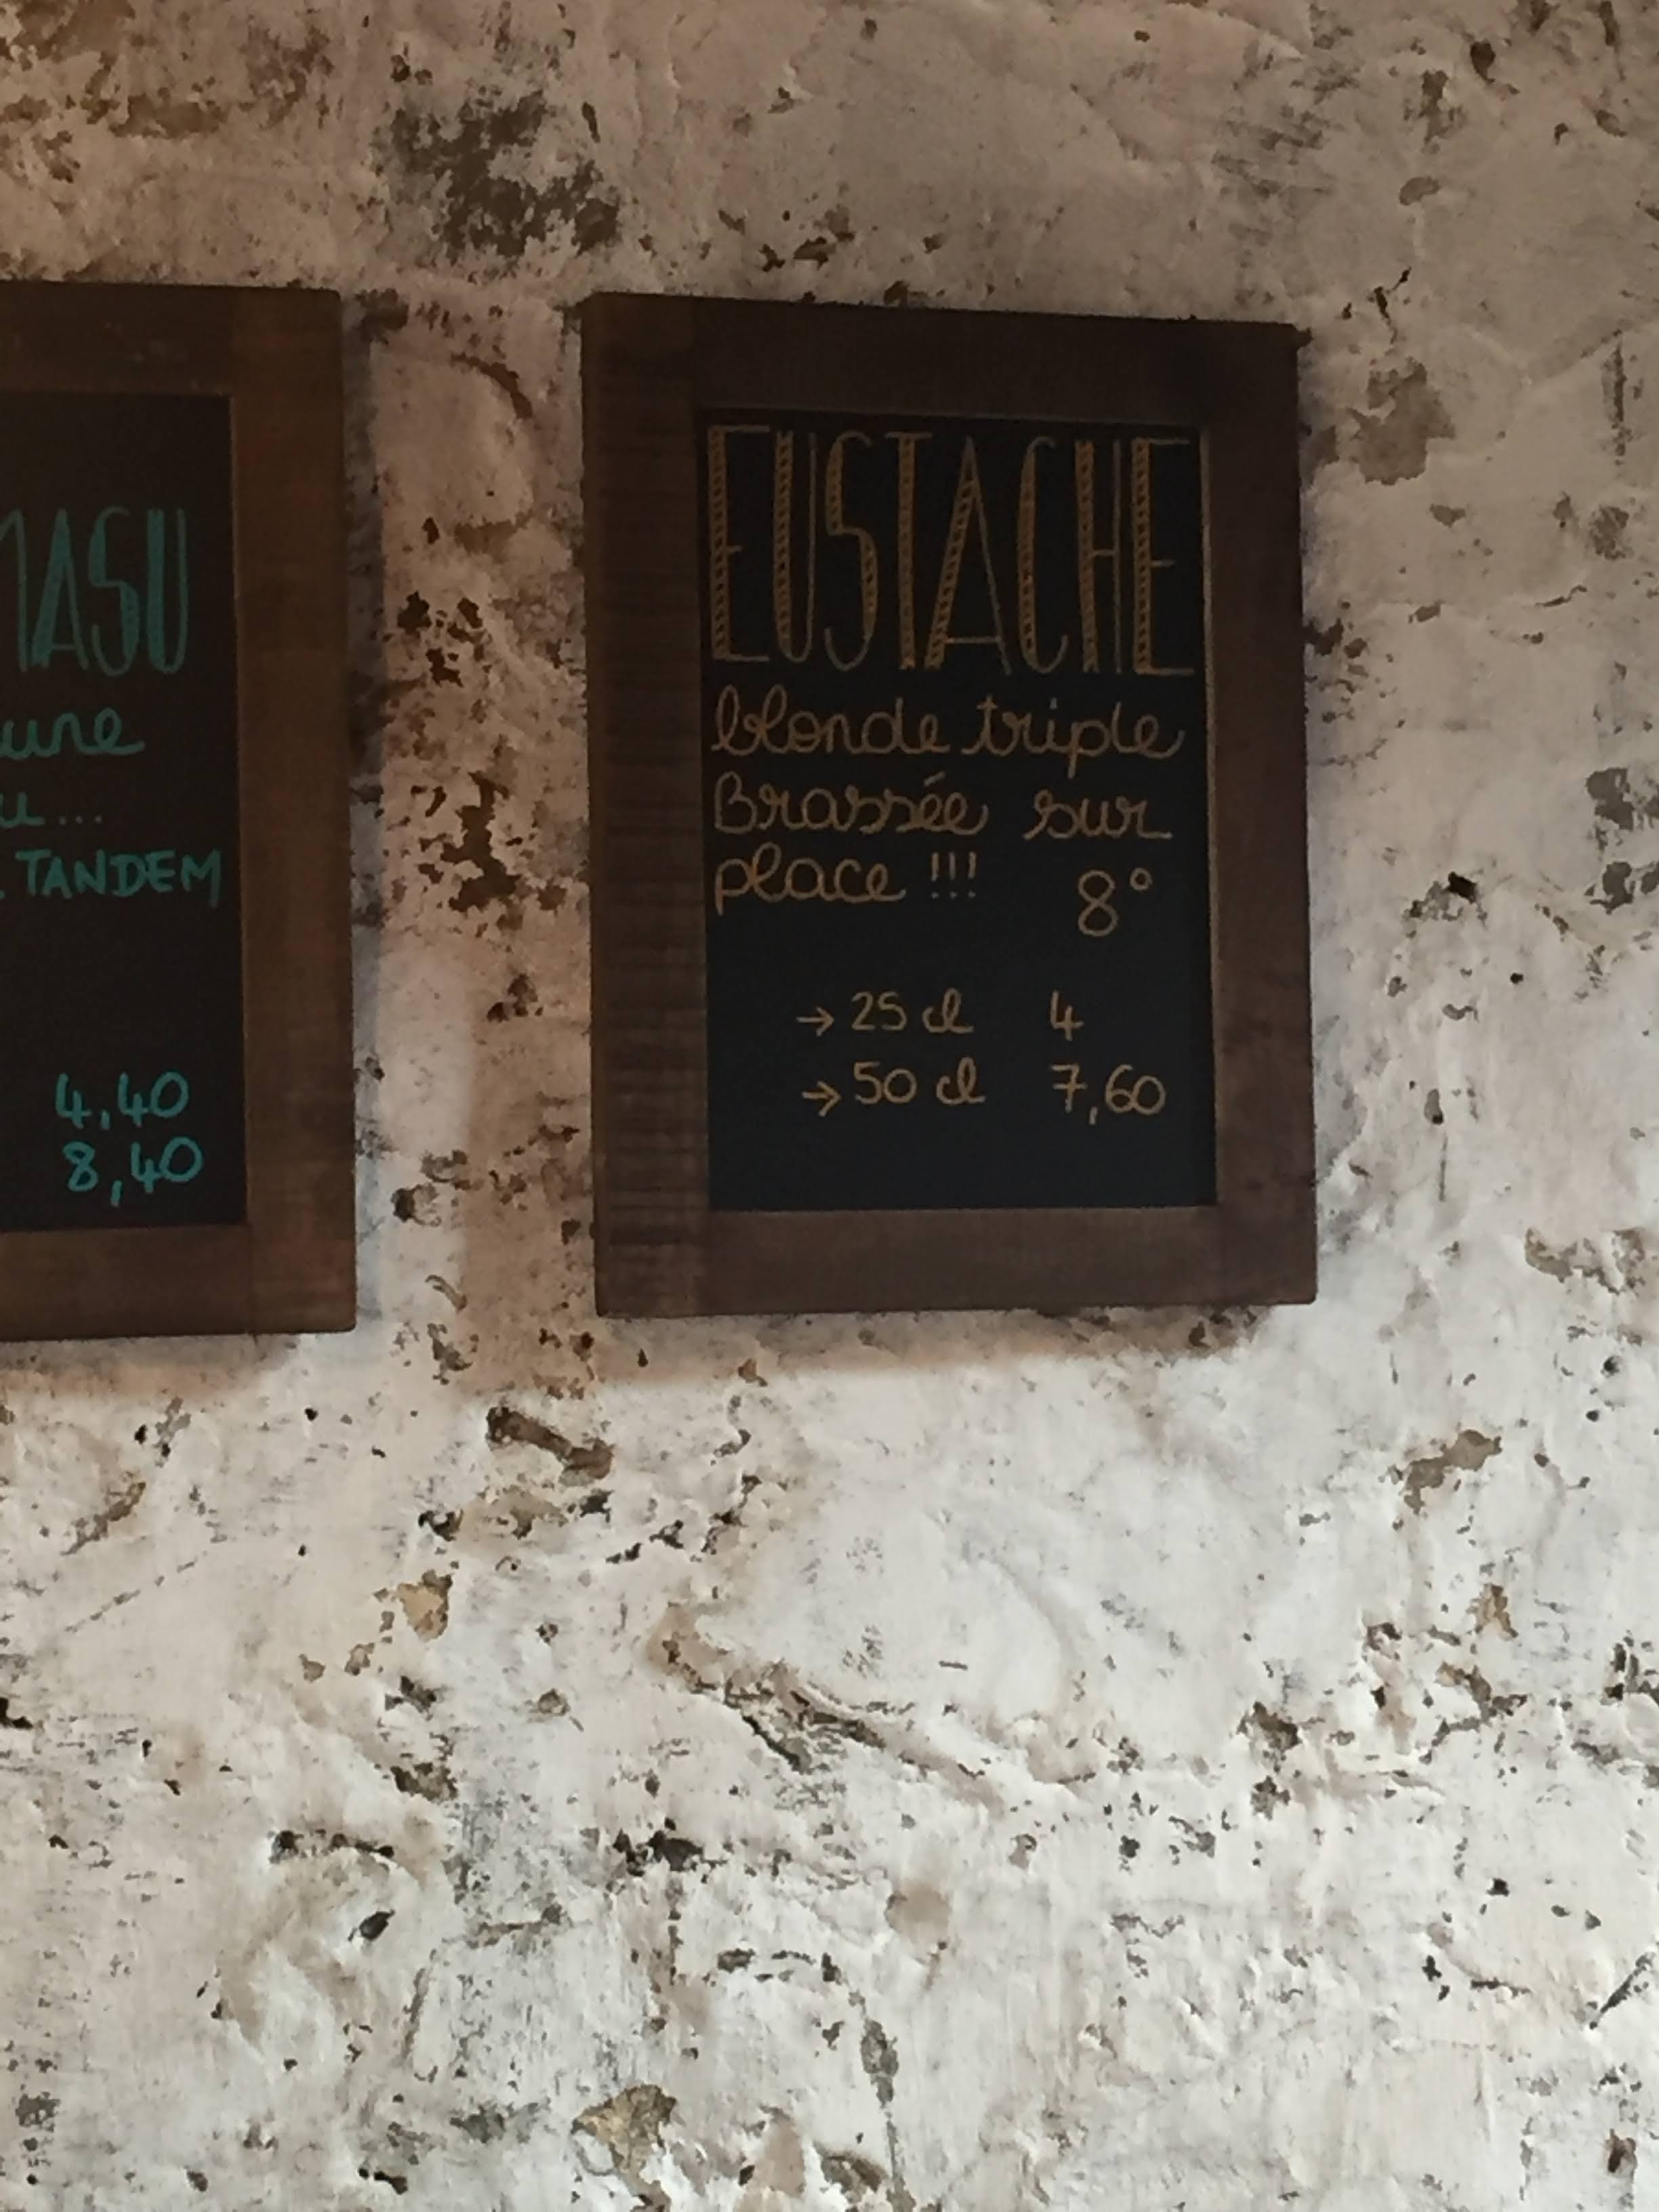 MASU
TANDEM
4,40
8,40
EUSTACHE
blonde triple
Brassée sur
place !!! 8°
→ 25 cl 4
→ 50 cl 7,60